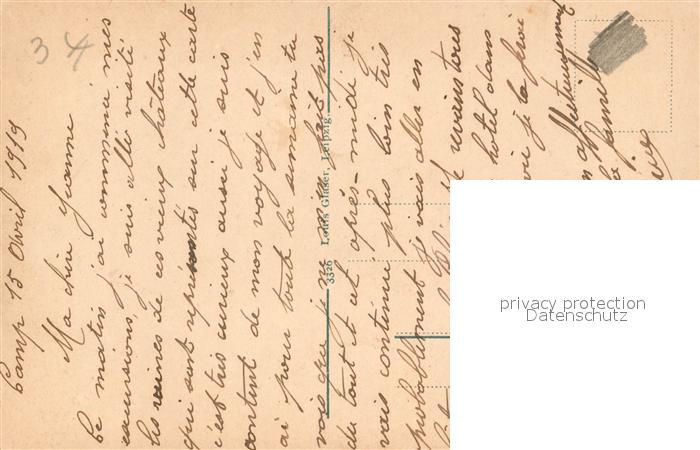 34
Camp 15 Avril 1919
Ma chère Yvonne
Ce matin j'ai commencé mes
excursions, je suis allé visité
les ruines de ces vieux châteaux
qui sont représentés sur cette carte
c'est très curieux aussi je suis
content de mon voyage et j'en
ai pour toute la semaine tu
vois que je ne m'en fait pas
du tout et cet après-midi je
vais continué plus loin très
probablement je vais aller en
reviens tous
hotel dans
je te prie
affectueusement
la famille
3326 Louis Glaser, Leipzig.
privacy protection
Datenschutz